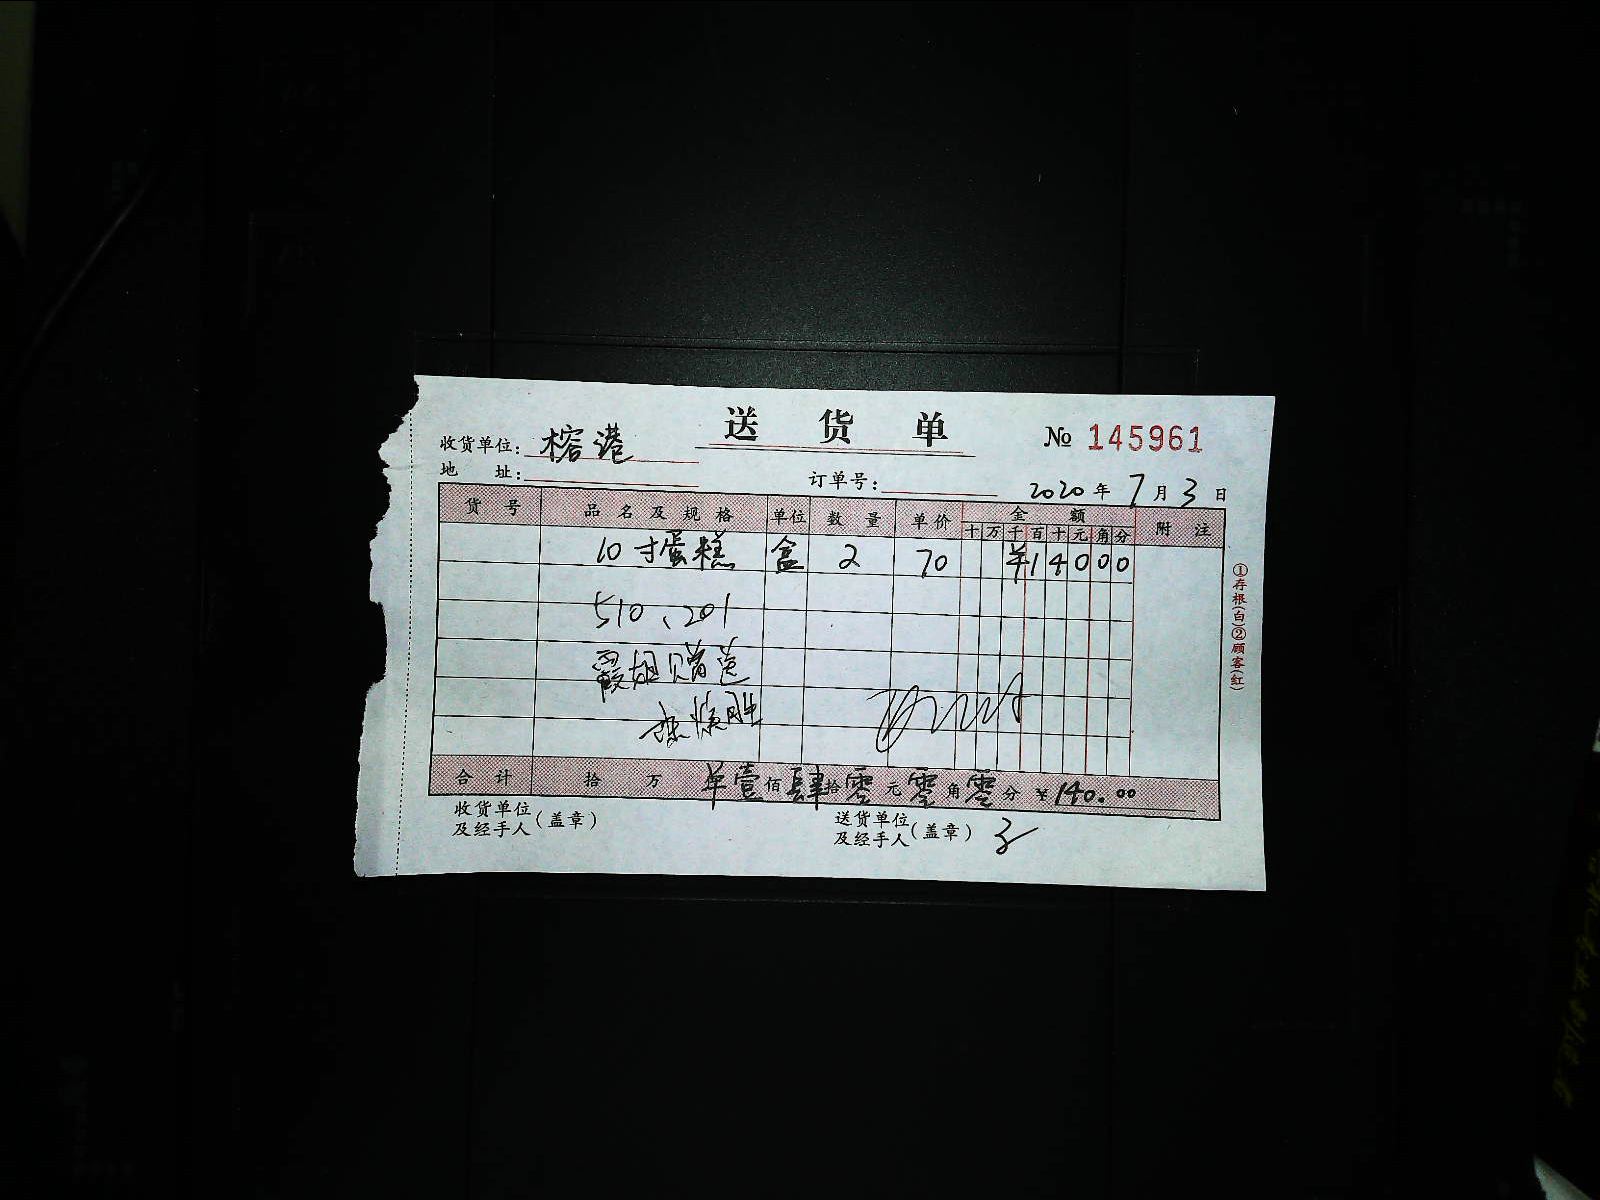 送 货 单
№ 145961
收货单位: 榕港
地 址:
订单号:
2020 年 7 月 3 日
货 号 品 名 及 规 格 单位 数 量 单价 金 额 附 注
十 万 千 百 十 元 角 分
10寸蛋糕 盒 2 70 ¥14000
510、201
赠送
合 计 拾 万 单壹佰肆拾零元零角零分 ¥140.00
收货单位
及经手人(盖章)
送货单位
及经手人(盖章)
①存根(白)②顾客(红)